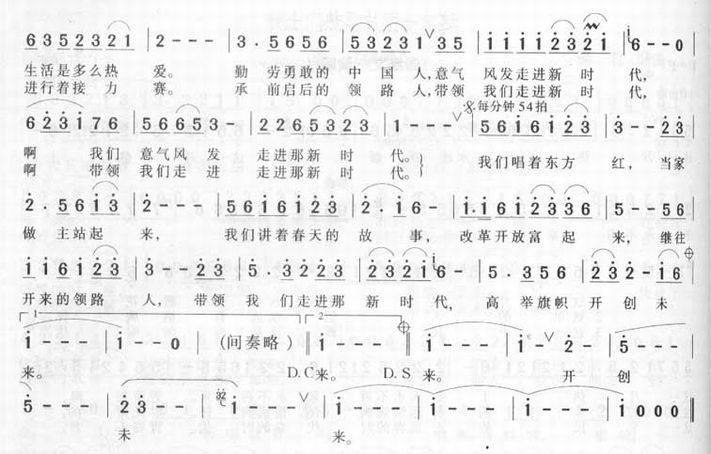 6 3 5 2 3 2 1 | 2 - - - | 3 . 5 6 5 6 | 5 3 2 3 1 ∨ 3 5 | i i i i 2 3 2 i | 6 - - 0
生活是多么热 爱。 勤 劳勇敢的 中 国 人,意气 风发走进新 时 代,
进行着接 力 赛。 承 前启后的 领 路 人,带领 我们走进新 时 代,
每分钟 54 拍
6 2 3 i 7 6 | 5 6 6 5 3 - | 2 2 6 5 3 2 3 | 1 - - - ∨ | 5 6 i 6 i 2 3 | 3 - - 2 3
啊 我们 意气风 发 走进那新 时 代。 我们唱着东方 红, 当家
啊 带领 我们走 进 走进那新 时 代。
2 . 5 6 i 3 | 2 - - - | 5 6 i 6 i 2 3 | 2 . i 6 - | i . i 6 i 2 3 3 6 | 5 - - 5 6
做 主站起 来, 我们讲着春天的 故 事, 改革开放富起 来, 继往
i i 6 i 2 3 | 3 - - 2 3 | 5 . 3 2 2 3 | 2 3 2 i 6 - | 5 . 3 5 6 | 2 3 2 - i 6
开来的领路 人, 带领 我 们走进那 新 时 代, 高 举旗帜 开 创 未
1 2
i - - - | i - - 0 (间奏略) i - - - | i - - - | i - ∨ 2 - | 5 - - -
来。 D.C 来。 D.S 来。 开 创
5 - - - | 2 3 - - | i - - - ∨ | i - - - | i - - - | i - - - | i 0 0 0
未 来。